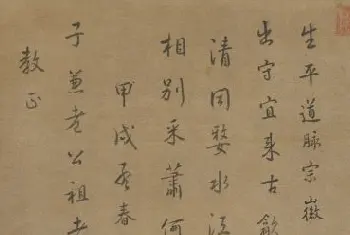 生平道脉宗嶽
出守宜來古歙
清同婺水流
相別采蕭何
甲戌季春
子兼老公祖
教正